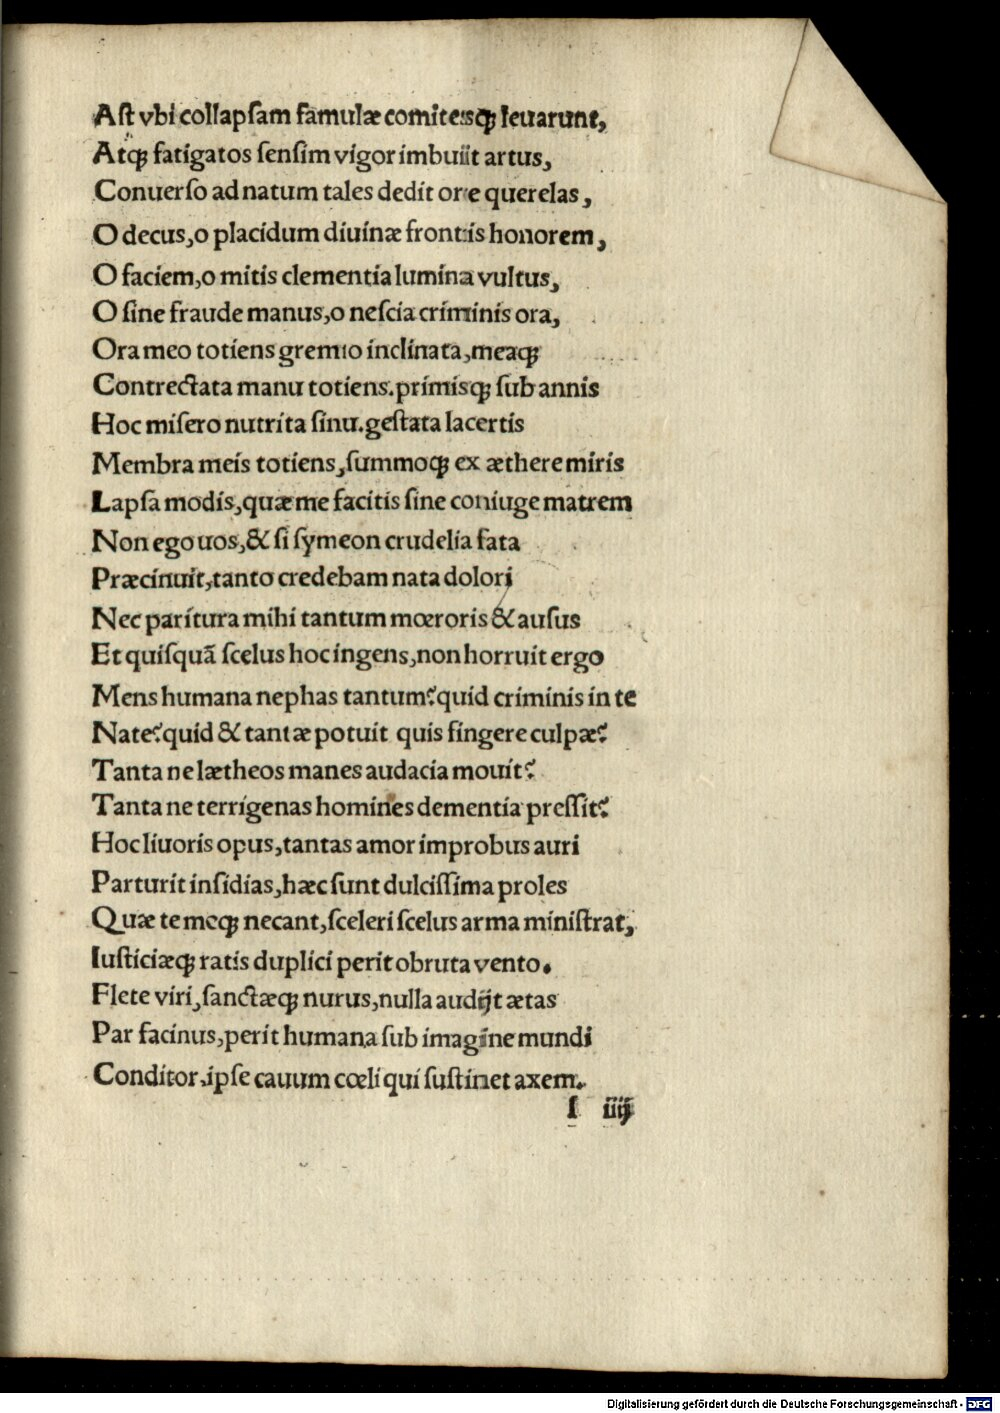 Aſt vbi collapſam famulæ comitesq; leuarunt,
Atq; fatigatos ſenſim vigor imbuiit artus,
Conuerſo ad natum tales dedit ore querelas,
O decus,o placidum diuinæ frontis honorem,
O faciem,o mitis clementia lumina vultus,
O ſine fraude manus,o neſcia criminis ora,
Ora meo totiens gremio inclinata,meaq;
Contrectata manu totiens.primisq; ſub annis
Hoc miſero nutrita ſinu.geſtata lacertis
Membra meis totiens,ſummoq; ex æthere miris
Lapſa modis,quæ me facitis ſine coniuge matrem
Non ego uos,& ſi ſymeon crudelia fata
Præcinuit,tanto credebam nata dolori
Nec paritura mihi tantum mœroris & auſus
Et quiſquã ſcelus hoc ingens,non horruit ergo
Mens humana nephas tantum?quid criminis in te
Nate?quid & tantæ potuit quis fingere culpæ?
Tanta ne lætheos manes audacia mouit?
Tanta ne terrigenas homines dementia preſſit?
Hoc liuoris opus,tantas amor improbus auri
Parturit inſidias,hæc ſunt dulciſſima proles
Quæ te meq; necant,ſceleri ſcelus arma miniſtrat,
Iuſticiæq; ratis duplici perit obruta vento.
Flete viri,ſanctæq; nurus,nulla audijt ætas
Par facinus,perit humana ſub imagine mundi
Conditor,ipſe cauum cœli qui ſuſtinet axem.
I iiij
Digitalisierung gefördert durch die Deutsche Forschungsgemeinschaft - DFG